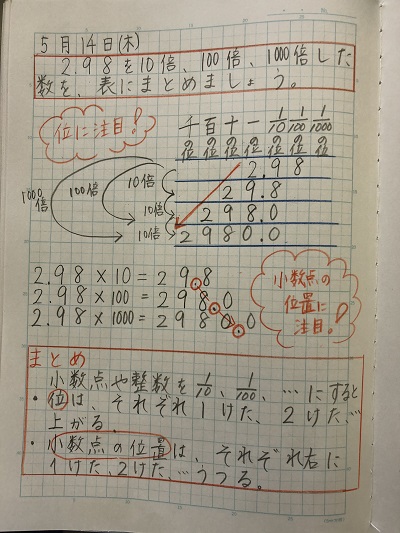 5月14日(木)
2.98を10倍、100倍、1000倍した
数を、表にまとめましょう。
位に注目!
千百十一 1/10 1/100 1/1000
の位 の位 の位 の位 の位 の位 の位
2.98
29.8
298.0
2980.0
1000倍
100倍
10倍
10倍
10倍
2.98×10=29.8
2.98×100=298.0
2.98×1000=2980.0
小数点の
位置に
注目!
まとめ
小数点や整数を1/10、1/100、…にすると
・位は、それぞれ1けた、2けた…
上がる。
・小数点の位置は、それぞれ右に
1けた、2けた、…うつる。